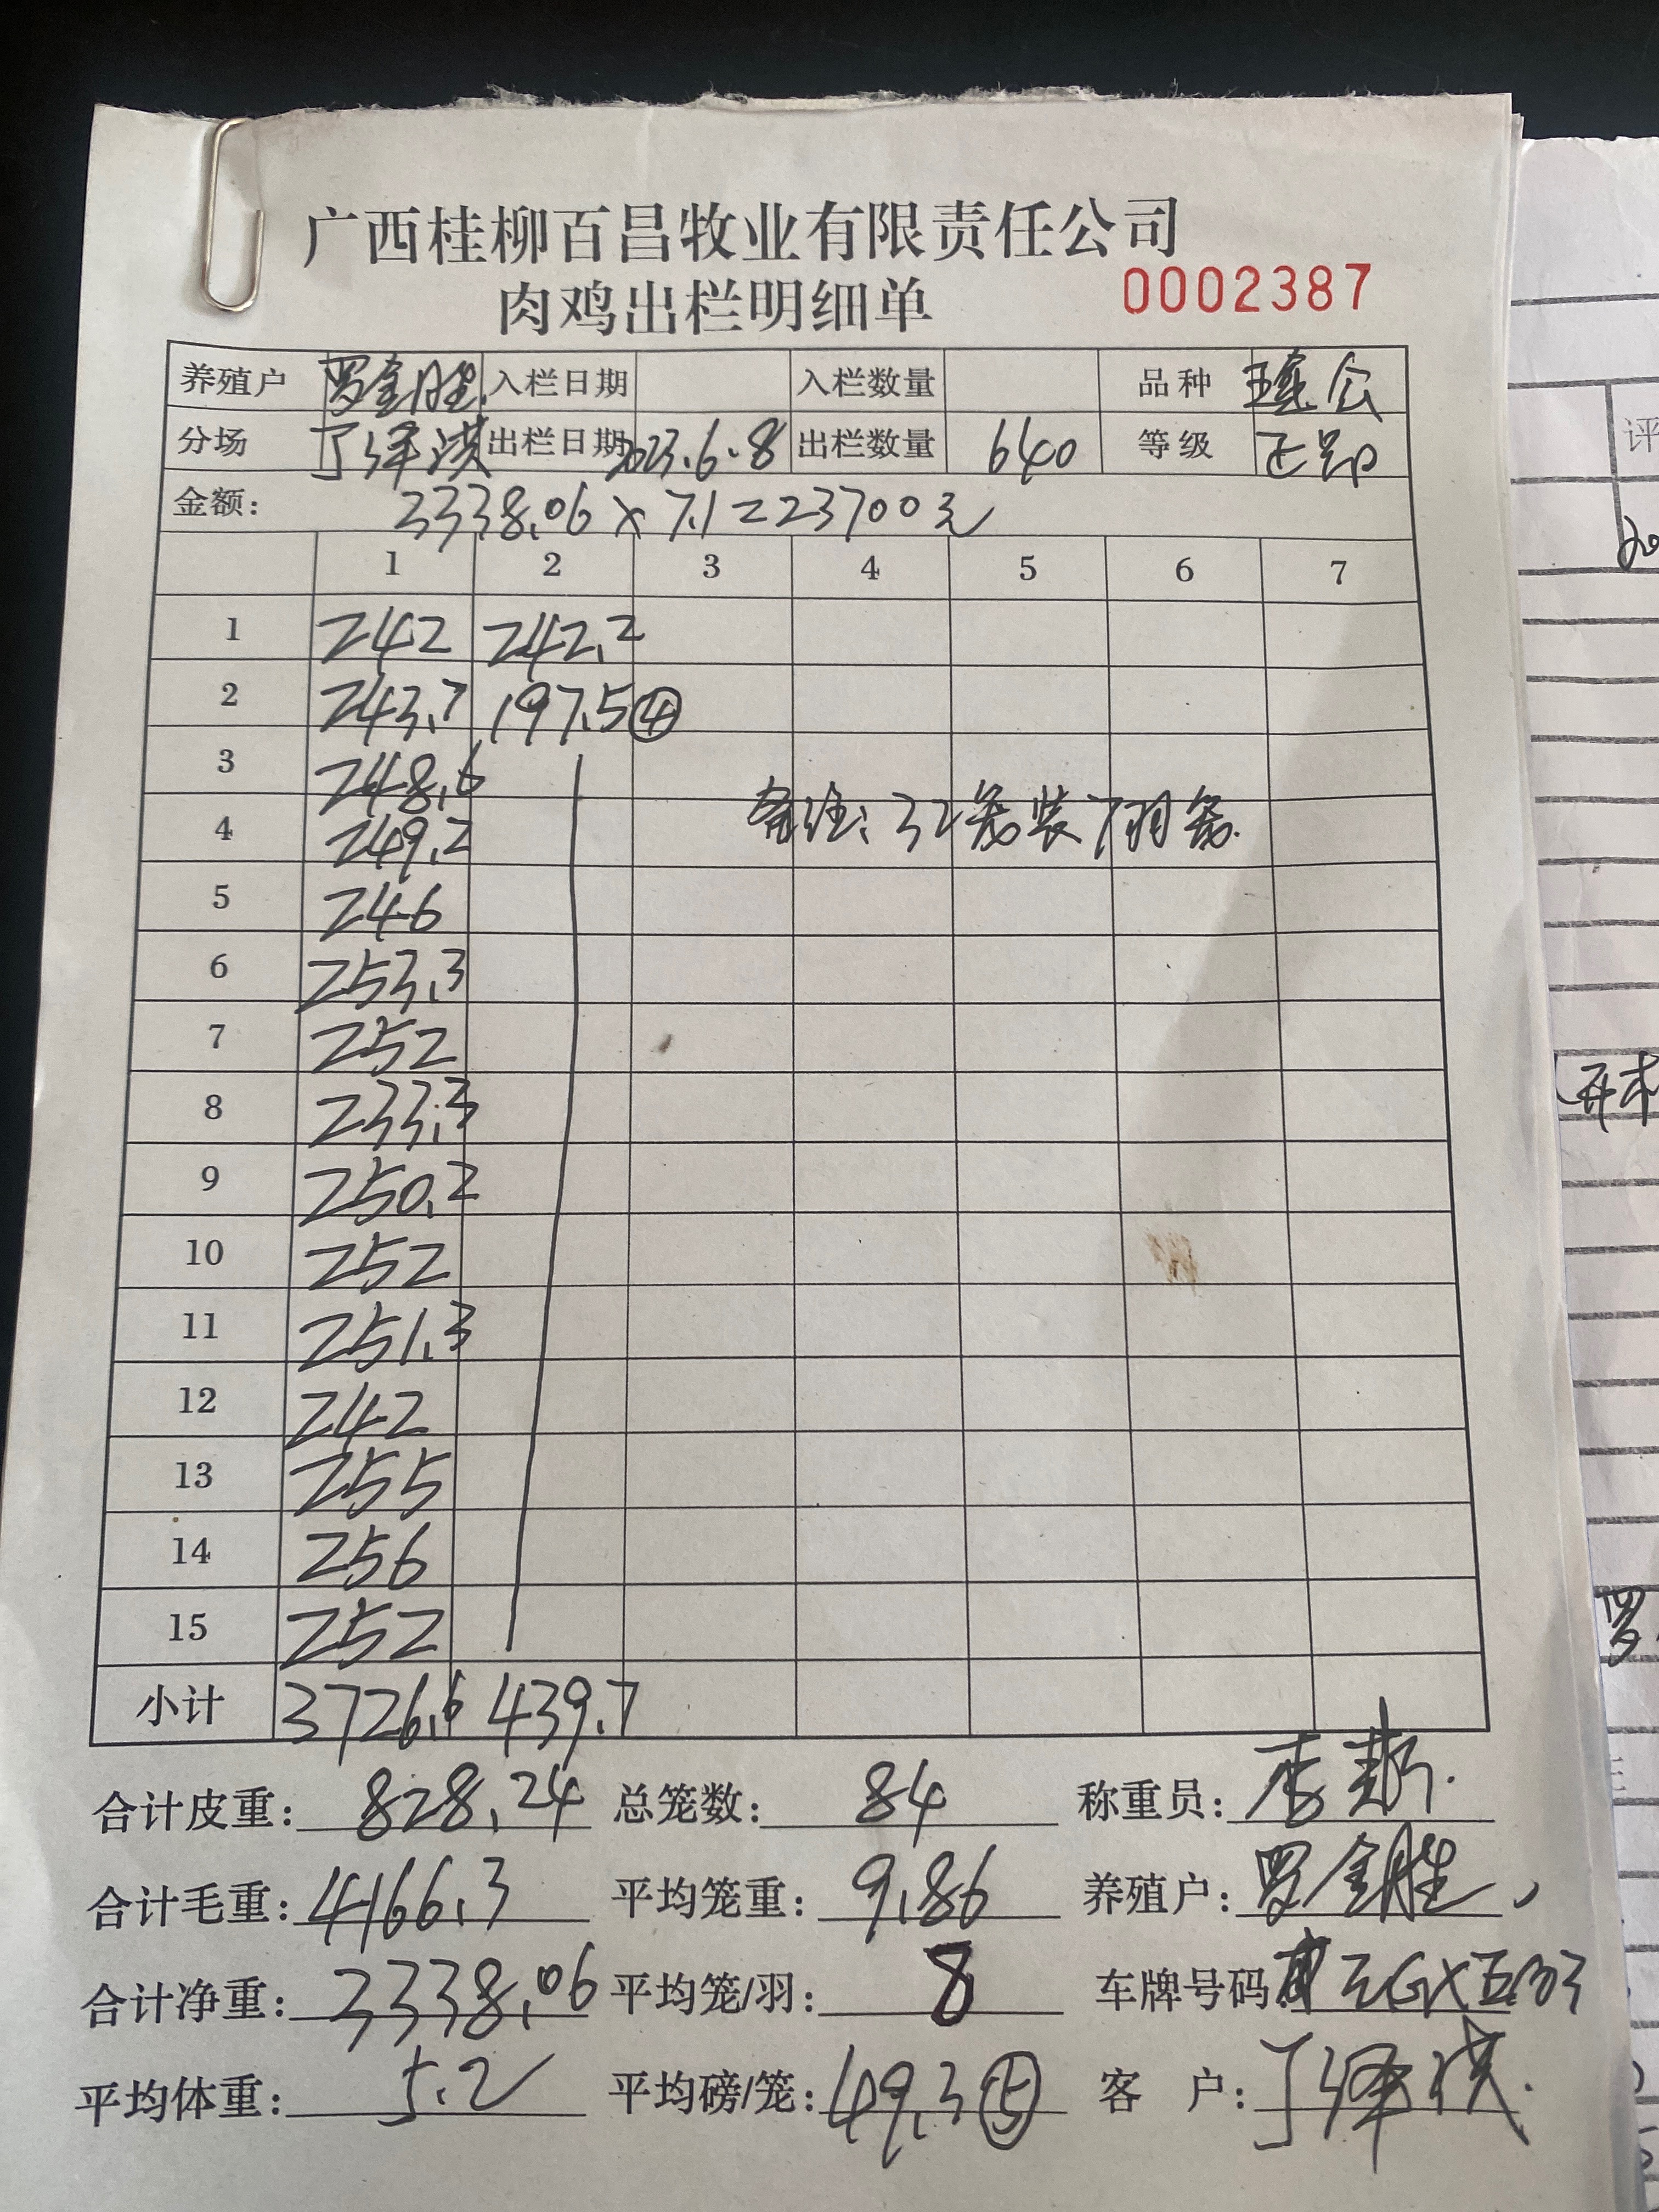 广西桂柳百昌牧业有限责任公司
肉鸡出栏明细单 0002387
养殖户 罗金胜 入栏日期 入栏数量 品种 公
分场 丁泽洪 出栏日期 2023.6.8 出栏数量 640 等级 正品
金额: 3338.06 x 7.1 = 23700元
1 2 3 4 5 6 7
1 242 242.2
2 243.7 197.5 ④
3 248.6
4 249.2 备注: 32笼装7羽笼.
5 246
6 253.3
7 252
8 233.3
9 250.2
10 252
11 251.3
12 242
13 255
14 256
15 252
小计 3726.6 439.7
合计皮重: 828.24 总笼数: 84 称重员: 李
合计毛重: 4166.3 平均笼重: 9.86 养殖户: 罗金胜
合计净重: 3338.06 平均笼/羽: 8 车牌号码:
平均体重: 5.2 平均磅/笼: 49.3 ⑤ 客 户: 丁泽洪.
评
罗